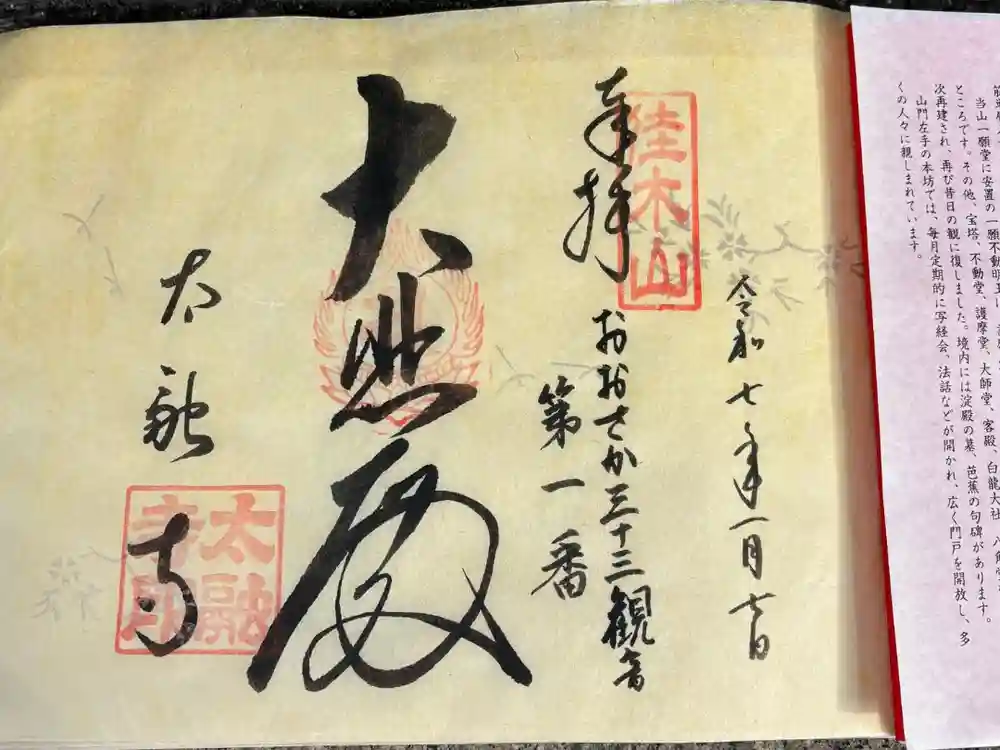 当山一願堂に安置の一願不動明王は、
ところです。その他、宝塔、不動堂、護摩堂、大師堂、客殿、白龍大社、
次再建され、再び昔日の観に復しました。境内には淀殿の墓、芭蕉の句碑があります。
山門左手の本坊では、毎月定期的に写経会、法話などが開かれ、広く門戸を開放し、多
くの人々に親しまれています。
令和七年一月七日
佳木山
奉拝
おおさか三十三観音
第一番
大悲殿
太融寺
太融
寺印